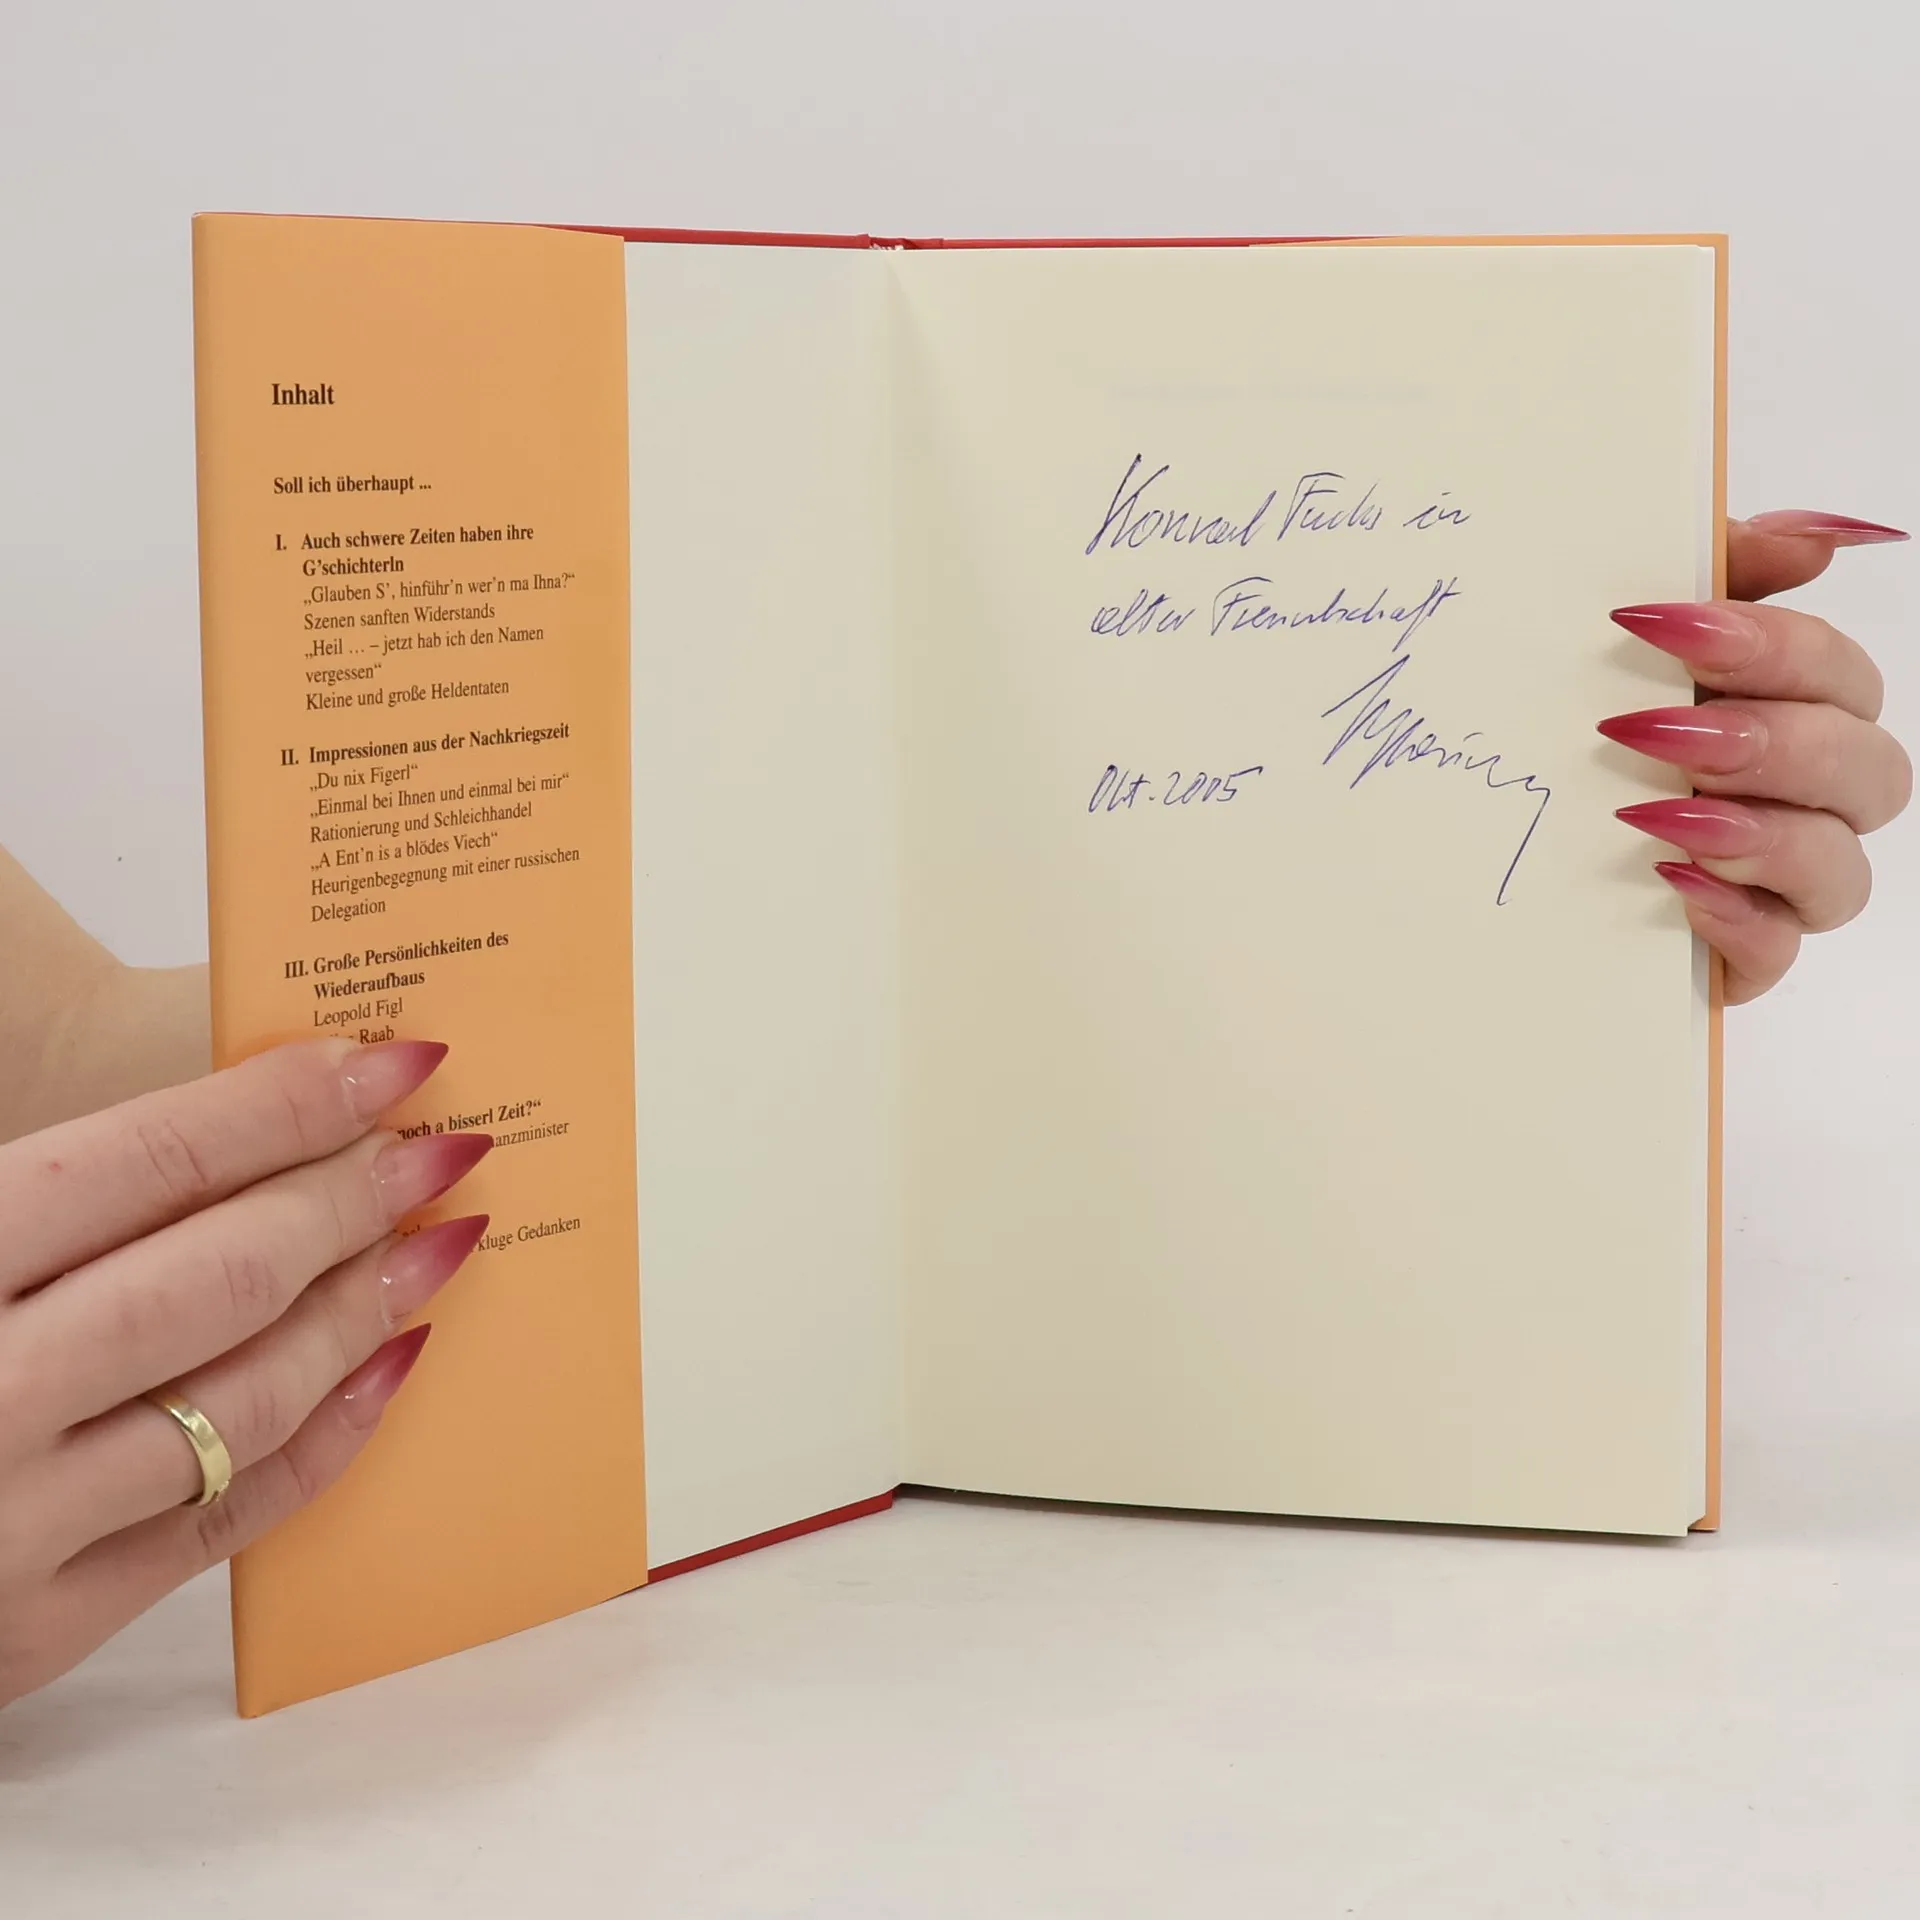 Inhalt
Soll ich überhaupt ...
I. Auch schwere Zeiten haben ihre
G’schichterln
„Glauben S’, hinführ’n wer’n ma Ihna?“
Szenen sanften Widerstands
„Heil ... – jetzt hab ich den Namen
vergessen“
Kleine und große Heldentaten
II. Impressionen aus der Nachkriegszeit
„Du nix Figerl“
„Einmal bei Ihnen und einmal bei mir“
Rationierung und Schleichhandel
„A Ent’n is a blödes Viech“
Heurigenbegegnung mit einer russischen
Delegation
III. Große Persönlichkeiten des
Wiederaufbaus
Leopold Figl
Raab
noch a bisserl Zeit?“
anzminister
kluge Gedanken
Konrad Fuchs in
alter Freundschaft
Okt. 2005